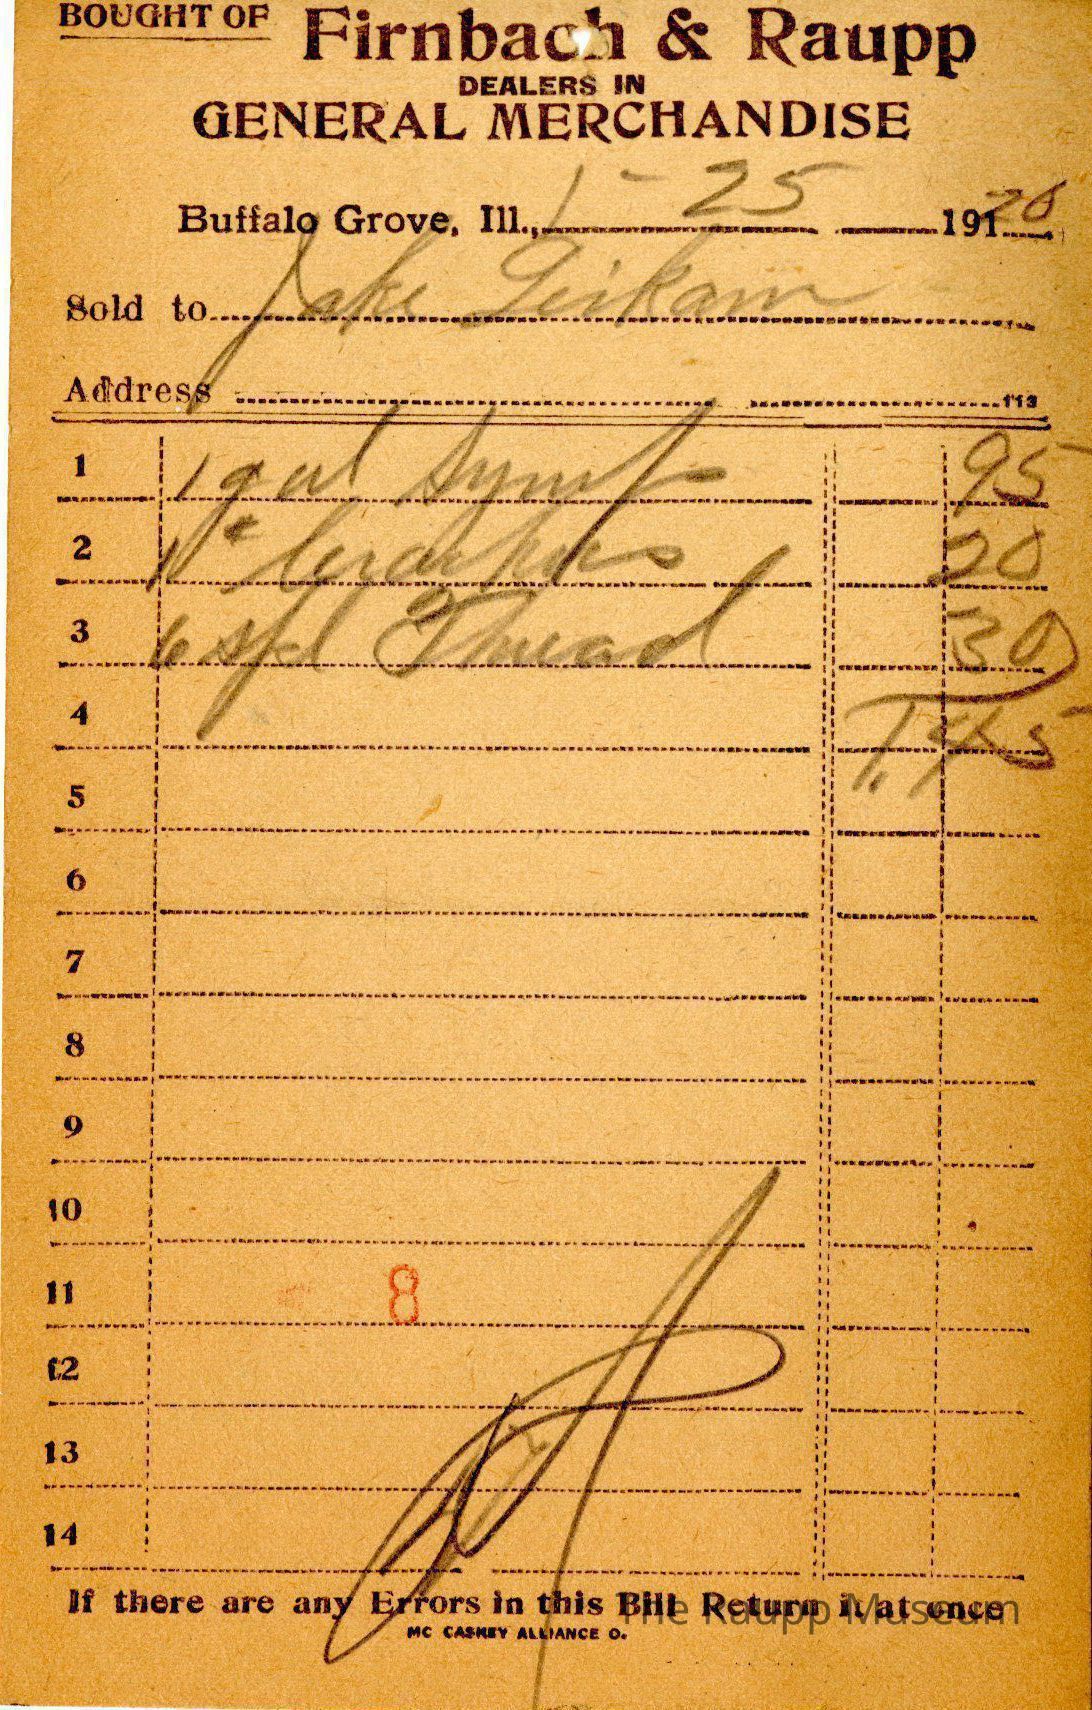 BOUGHT OF Firnbach & Raupp
DEALERS IN
GENERAL MERCHANDISE
Buffalo Grove, Ill., 1-25 19120
Sold to Jake Geikam
Address 113
1 1 gal Syrup 95
2 1# Crackers 20
3 6 spl Thread 30
4 1.45
5
6
7
8
9
10
11 8
12
13
14
If there are any Errors in this Bill Return it at once
The Raupp Museum
MC CASKEY ALLIANCE O.